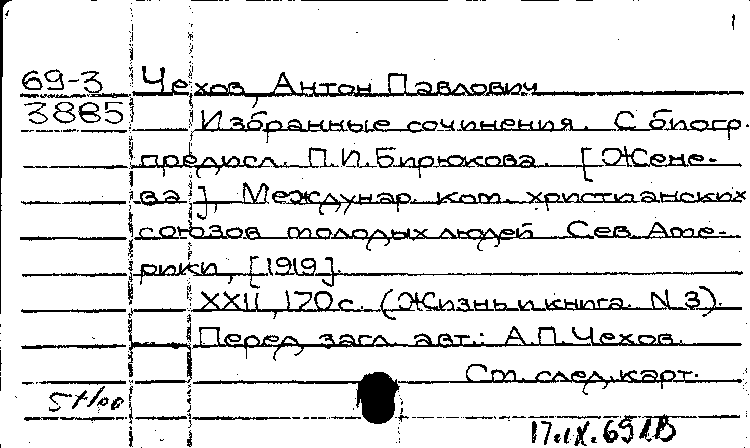 1
69-3 Чехов, Антон Павлович
3885 Избранные сочинения. С биогр.
предисл. П.И.Бирюкова. [Жене-
ва], Междунар. ком. христианских
союзов молодых людей Сев. Аме-
рики, [1919].
XXII, 170 с. (Жизнь и книга. N 3).
Перед загл. авт.: А.П.Чехов.
См. след. карт.
17.IX.69